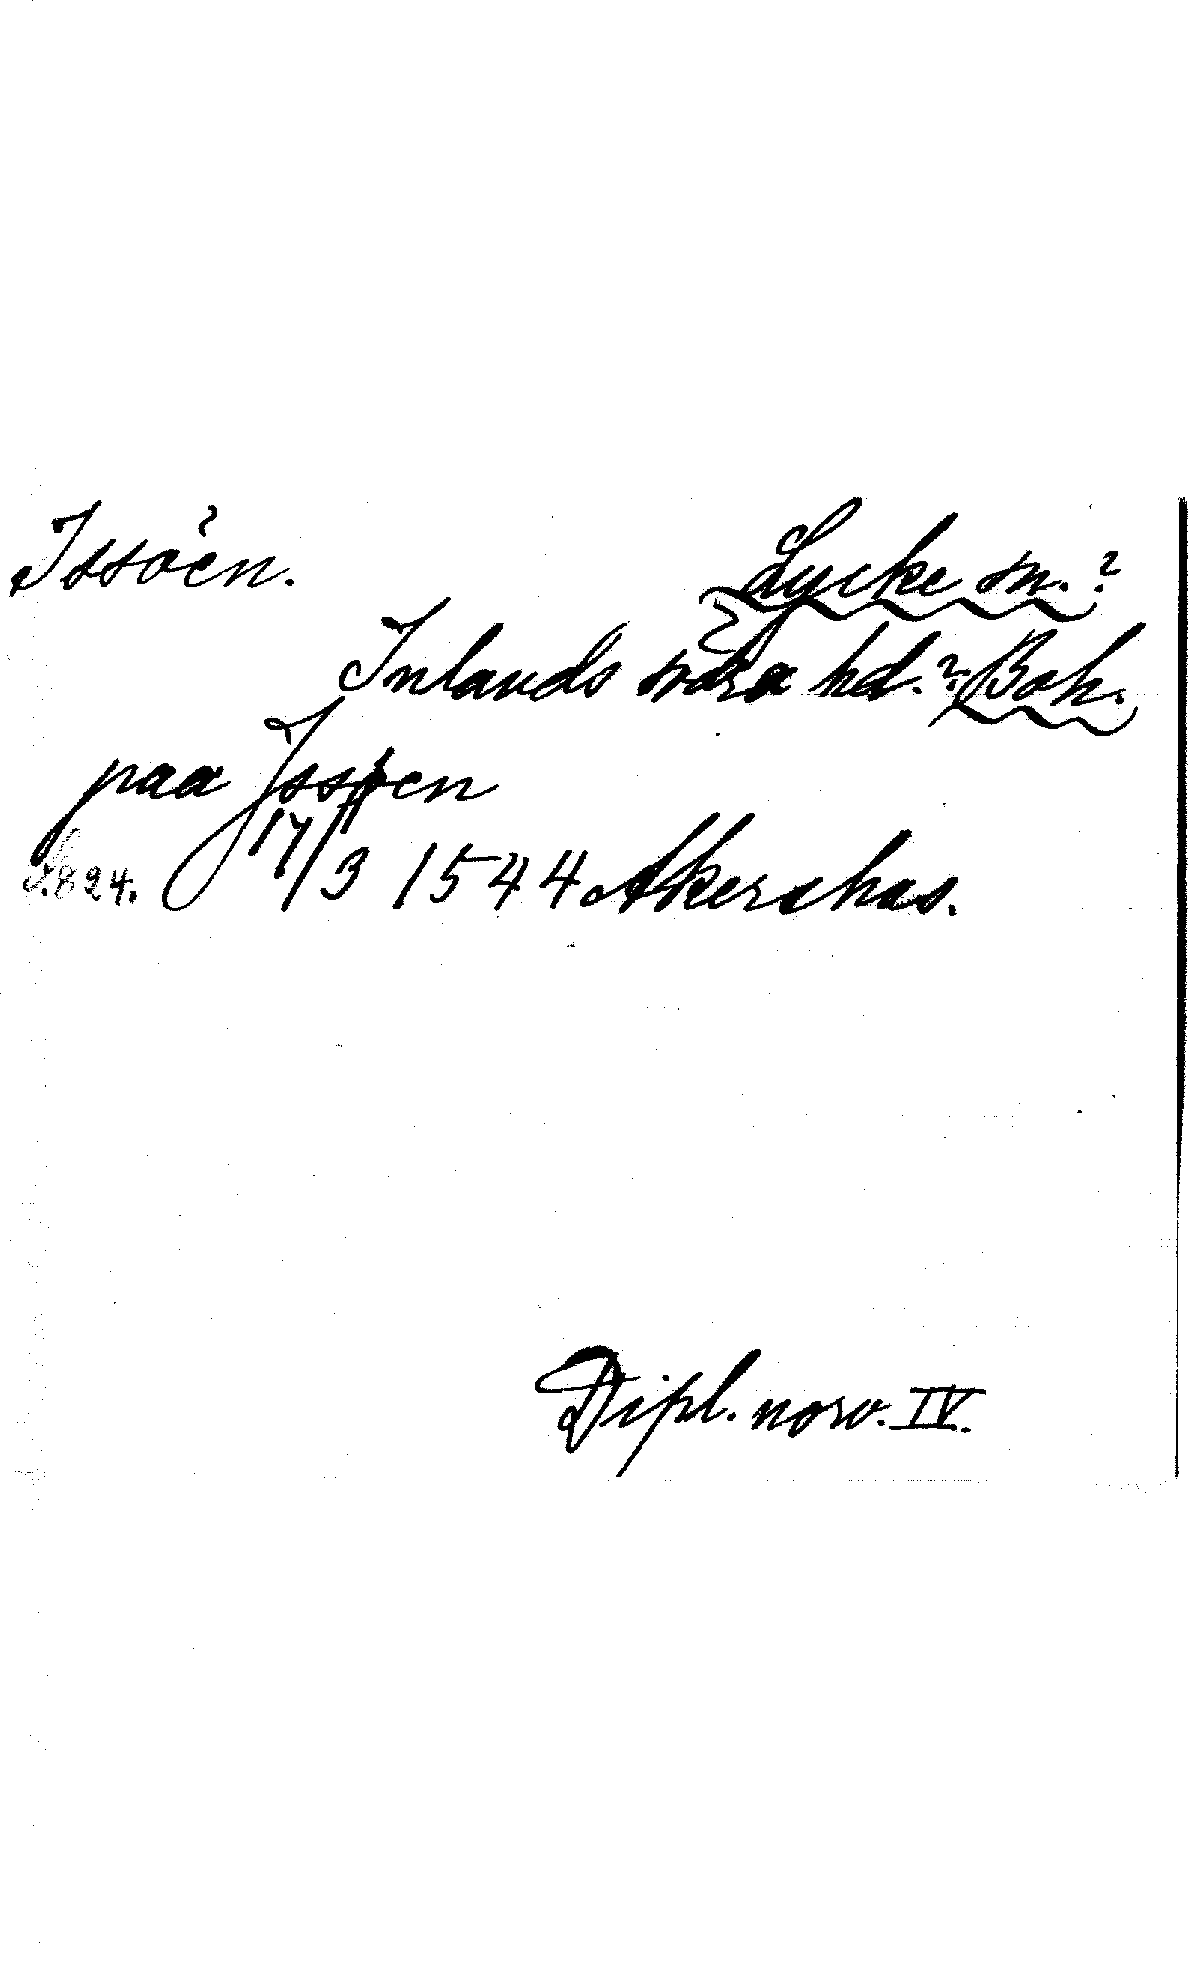 Issöen.
Lycke sn.?
Inlands södra hd.? Boh.
paa Jssøen
S. 824. 17/3 1544 Akershus.
Dipl. norv. IV.